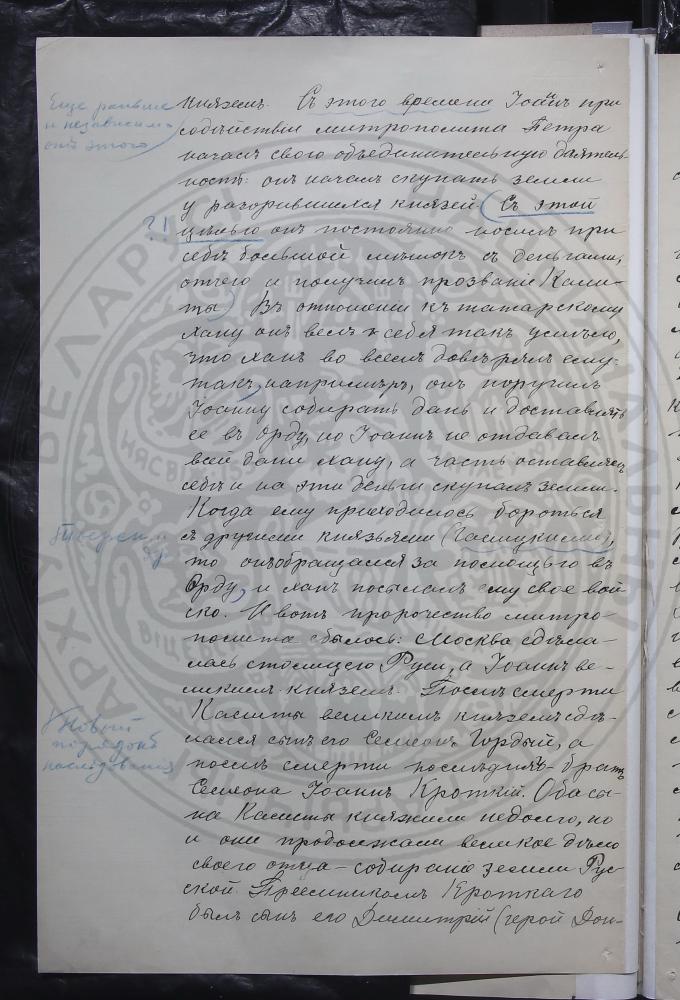 Еще раньше
и независимо
отъ этого
княземъ. Съ этого времени Іоаннъ при
содѣйствіи митрополита Петра
началъ свою объединительную дѣятель-
ность: онъ началъ скупать земли
у разорившихся князей. (Съ этой
?!
цѣлью онъ постоянно носилъ при
себѣ большой мѣшокъ съ деньгами,
отчего и получилъ прозваніе Кали-
ты) Въ отношеніи къ татарскому
хану онъ велъ себя такъ умѣло,
что ханъ во всемъ довѣрялъ ему:
такъ, напримѣръ, онъ поручилъ
Іоанну собирать дань и доставлять
ее въ Орду, но Іоаннъ не отдавалъ
всей дани хану, а часть оставлялъ
себѣ и на эти деньги скупалъ земли.
Когда ему приходилось бороться
съ другими князьями
то онъ обращался за помощью въ
Орду, и ханъ посылалъ ему свое вой
ско. И вотъ пророчество митро-
полита сбылось: Москва сдѣла-
лась столицею Руси, а Іоаннъ ве-
ликимъ княземъ. Послѣ смерти
Калиты великимъ княземъ сдѣ-
Новый
порядокъ
наслѣдованія
лался сынъ его Семеонъ Гордый, а
послѣ смерти послѣдняго - братъ
Семеона Іоаннъ Кроткій. Оба сы-
на Калиты княжили недолго, но
и они продолжали великое дѣло
своего отца - собираніе земли Рус-
ской Преемникомъ Кроткаго
былъ сынъ его Димитрій (герой Дон-
АРХІЎ БЕЛАРУ
НЯСВІ
ВІЦЕБСК